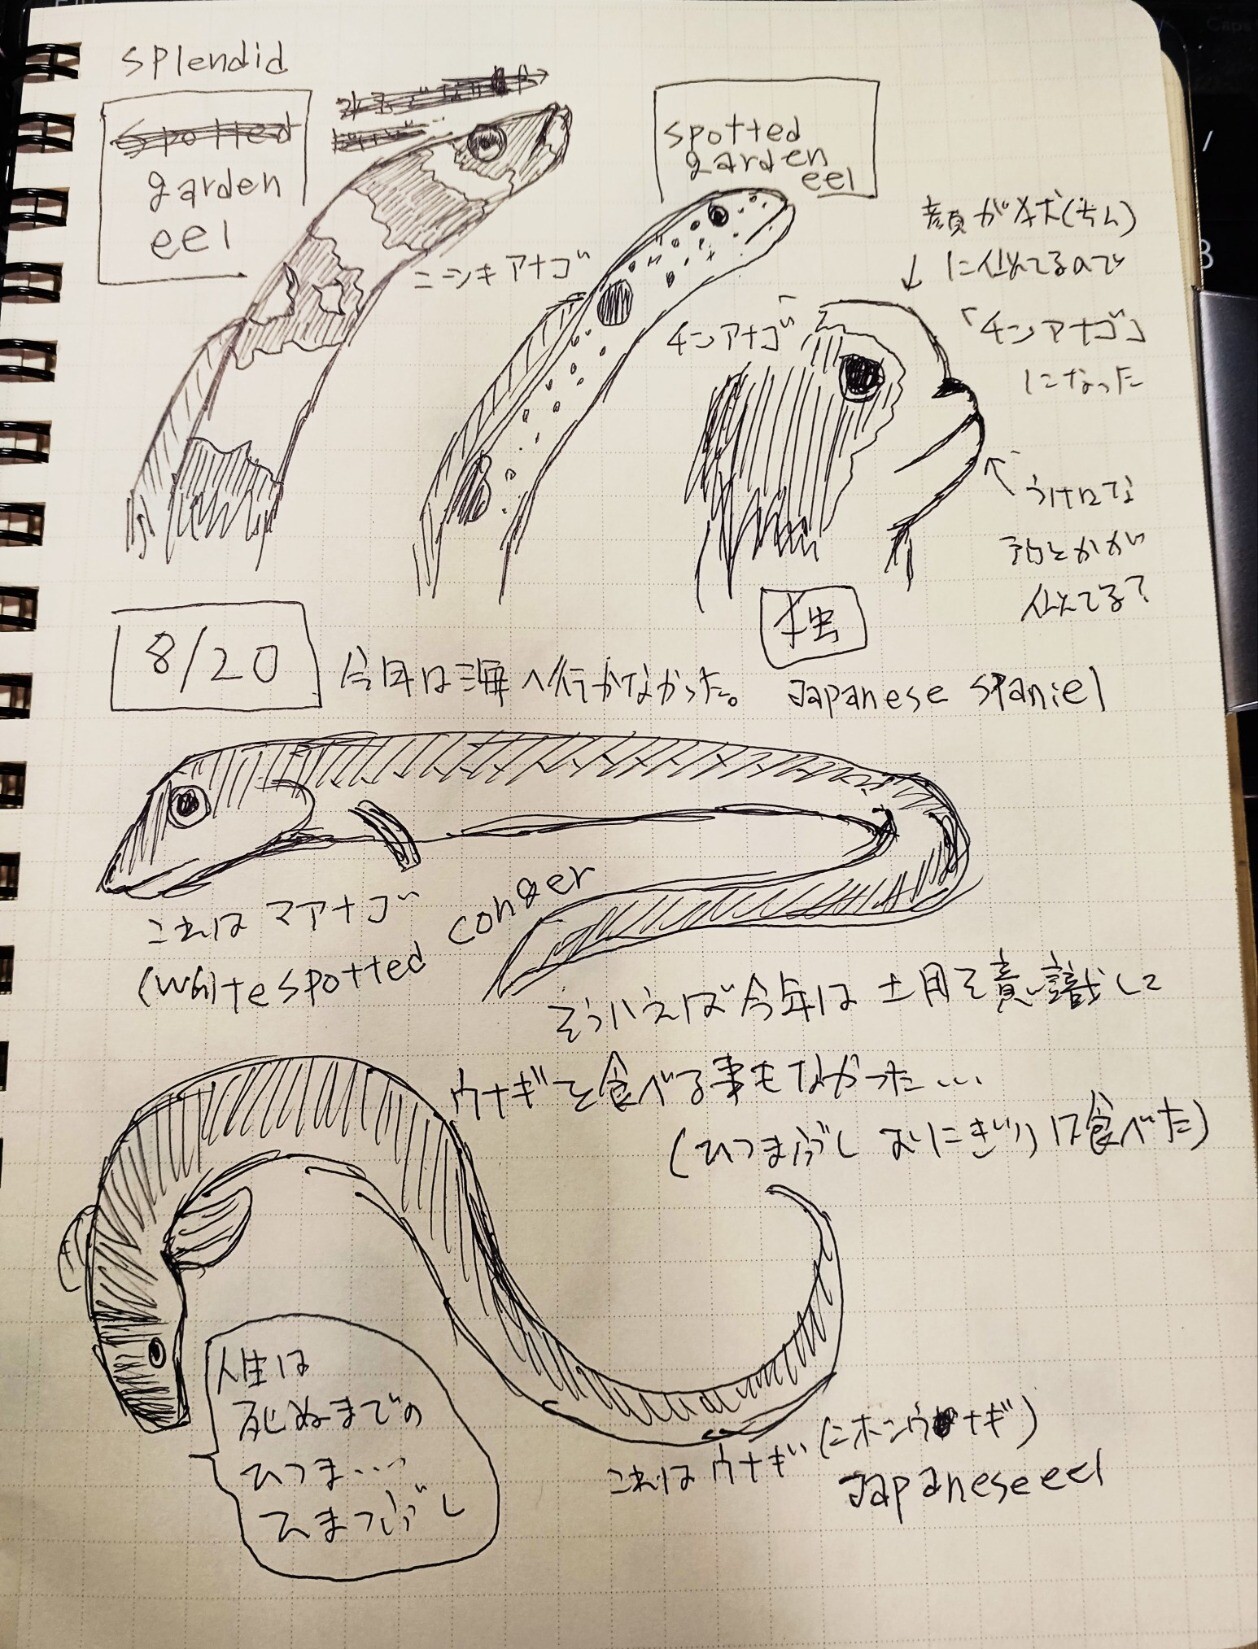 splendid
Spotted
garden
eel
ニシキアナゴ
spotted
garden
eel
チンアナゴ
顔が狆(ちん)
に似てるので
「チンアナゴ」
になった
うけ口な
所とかが
似てる?
狆
Japanese spaniel
8/20
今年は海へ行かなかった。
これはマアナゴ
(Whitespotted conger
そういえば今年は土用を意識して
ウナギを食べる事もなかった...
(ひつまぶしおにぎりは食べた)
人生は
死ぬまでの
ひつま...
ひまつぶし
これはウナギ(ニホンウナギ)
Japanese eel